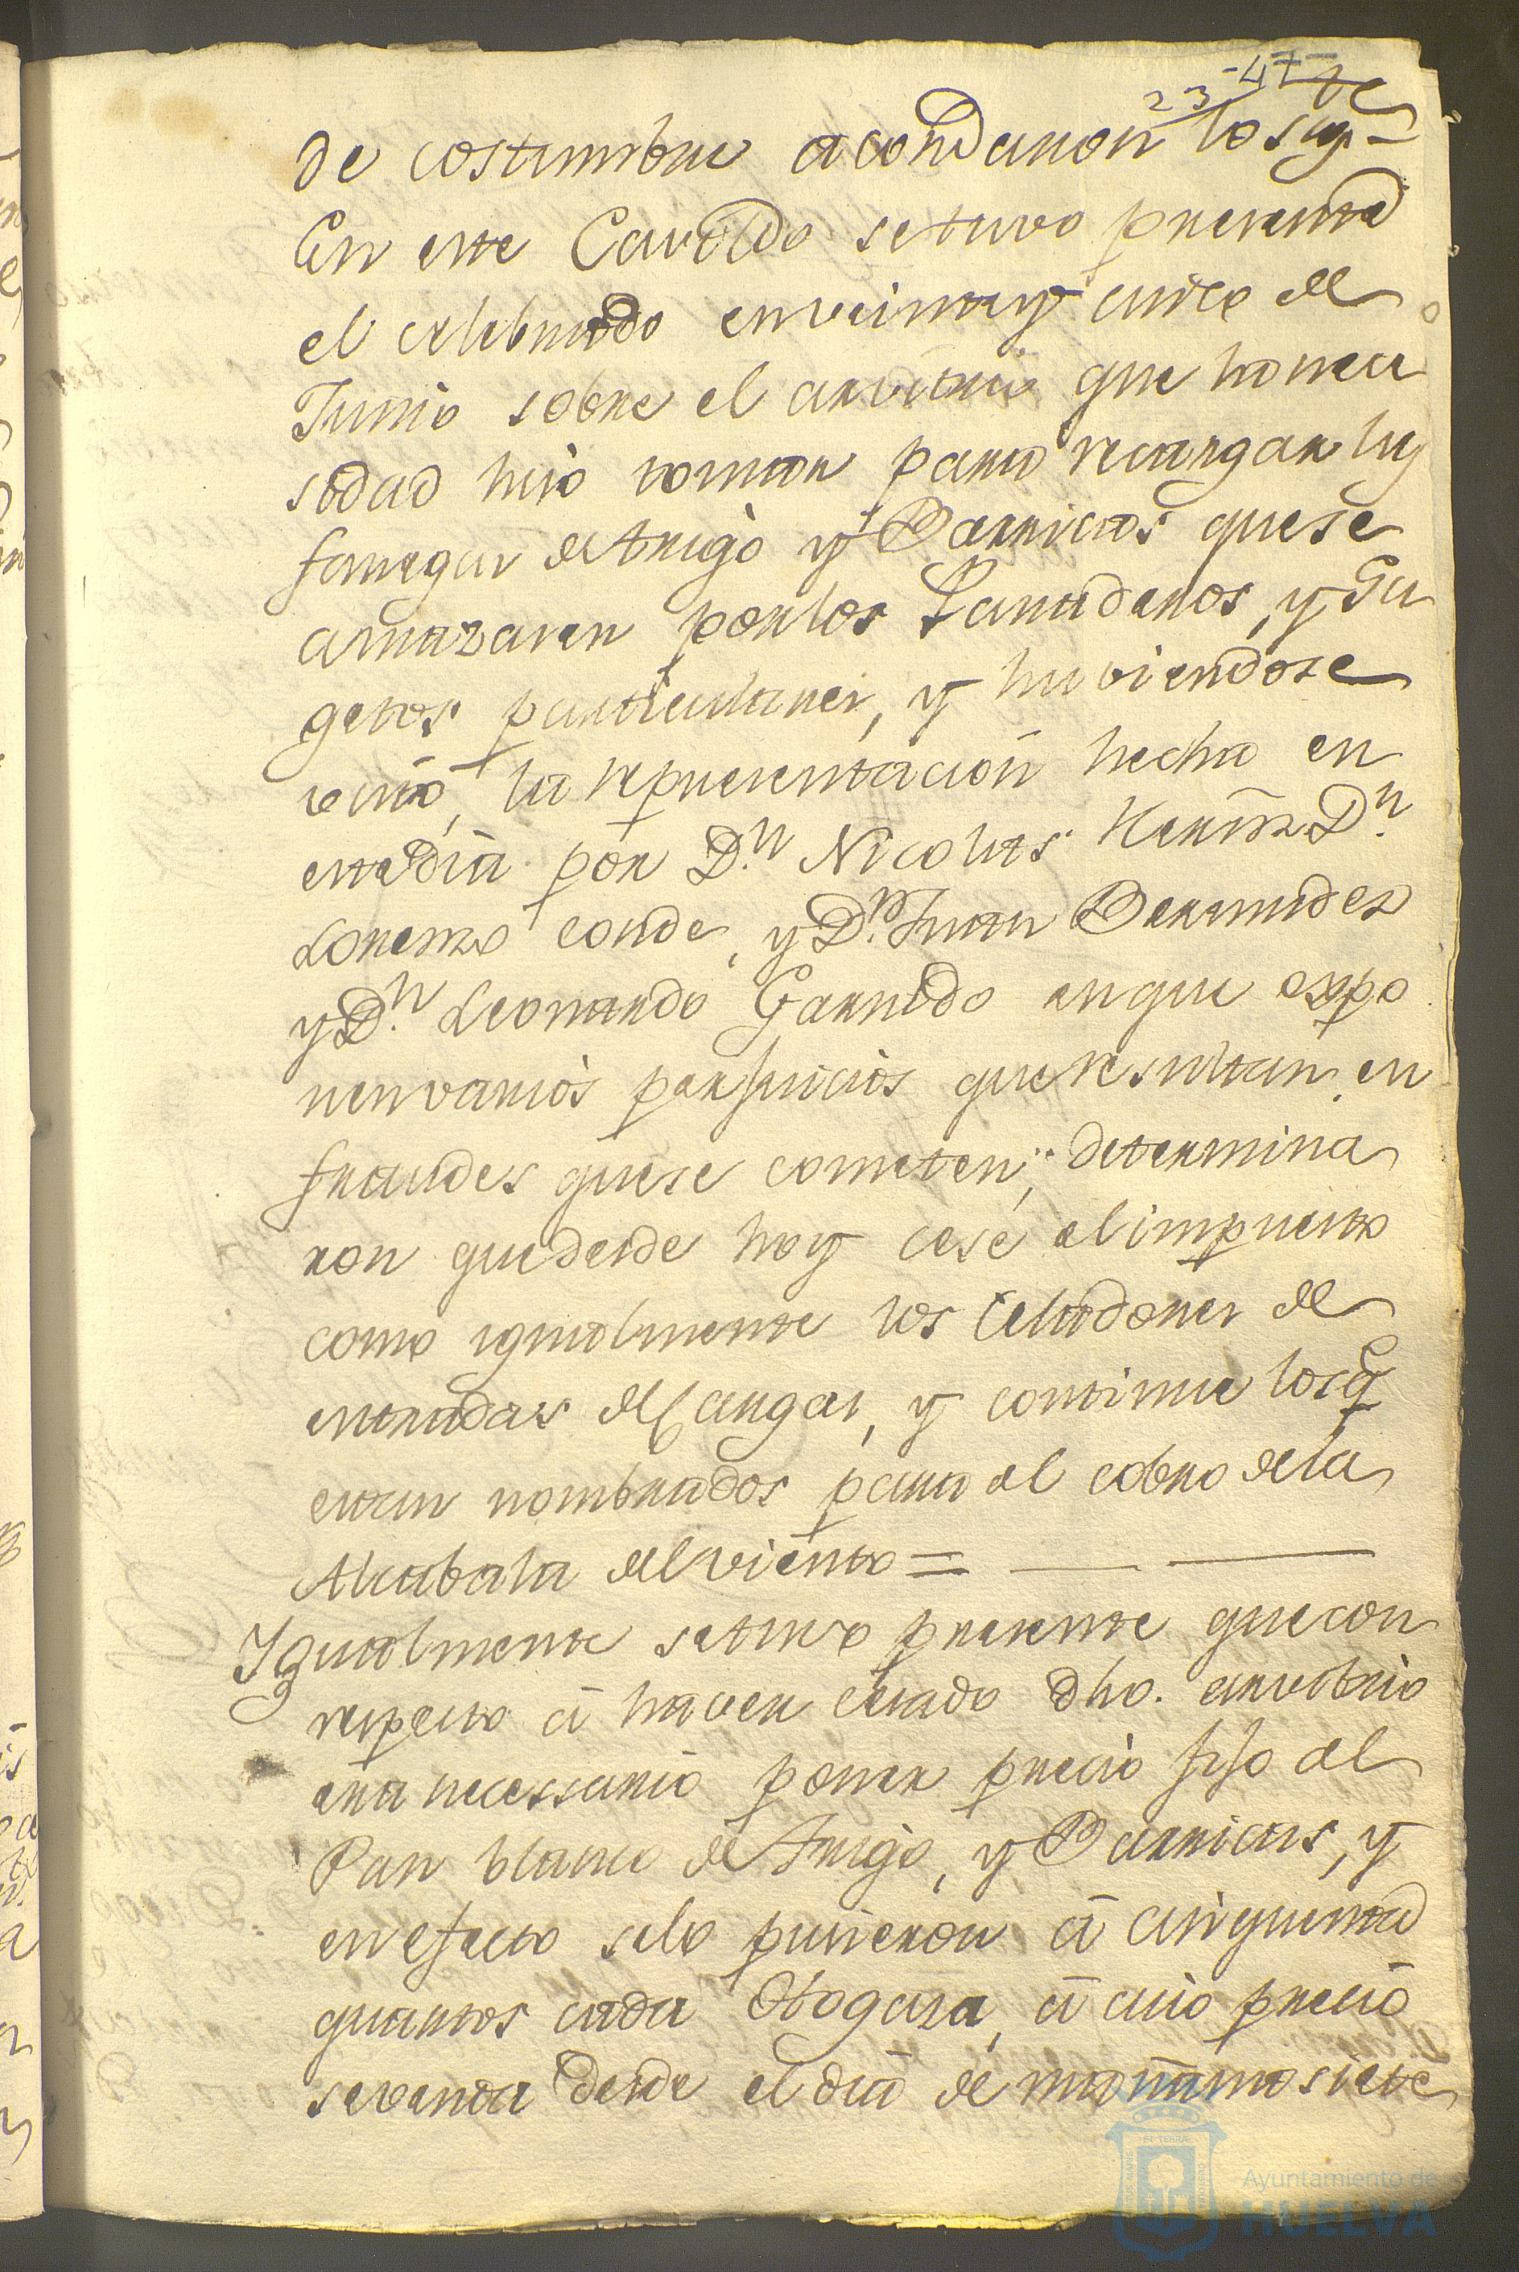 23 -47-
de costumbre acordaron lo sigte
En este Cavildo se tuvo presente
el celebrado en veinte y cinco de
Junio sobre el arvitrio que la nece
sidad hizo tomar para recargar las
fanegas de trigo y Barricas que se
amazaren por los Panaderos, y Su
getos particulares, y huviendose
visto, la representacion hecha en
este dia por Dn. Nicolas Dn.
Lorenzo Conde, y Dn. Juan Bermudez
y Dn. Leonardo Garrido en que expo
nen varios perjuicios que resultan, en
fraudes que se cometen; determina
ron que desde hoy cese el impuesto
como igualmente los Celadores de
entradas de Cargas, y continue los q
estan nombrados para el cobro de la
Alcabala del viento =
Igualmente se tuvo presente que con
respecto á haver cesado dho. arvitrio
era necessario poner precio fijo al
Pan blanco de trigo, y Barricas, y
en efecto selo pusieron á cinquenta
quartos cada Ologasa, á cuio precio
se venda desde el dia de mañana siete
Ayuntamiento de
HUELVA